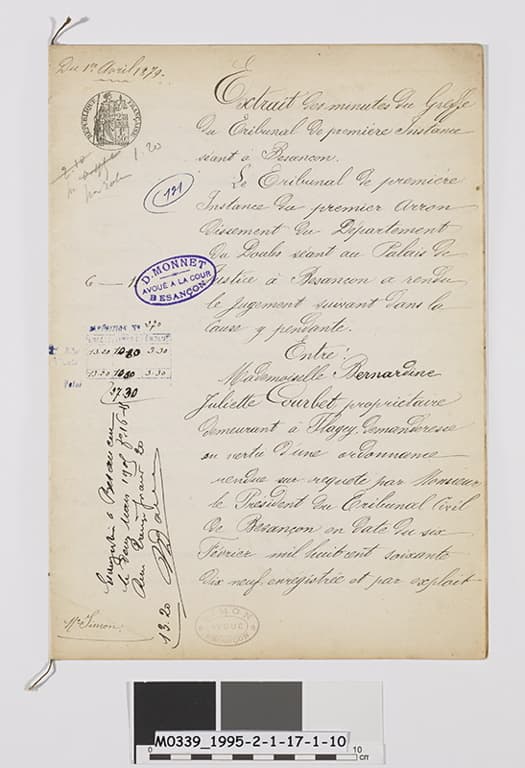 Du 1er Avril 1879.
REPUBLIQUE FRANÇAISE
1.20
121
D. MONNET
AVOUÉ A LA COUR
BESANÇON
Extrait des minutes du Greffe
du Tribunal de première Instance
séant à Besançon.
Le Tribunal de première
Instance du premier Arron
dissement du Département
du Doubs séant au Palais de
Justice à Besançon a rendu
le jugement suivant dans la
cause y pendante.
Entre:
Mademoiselle Bernardine
Juliette Courbet, propriétaire
demeurant à Flagey, demanderesse
en vertu d'une ordonnance
rendue sur requête par Monsieur
le Président du Tribunal Civil
de Besançon en date du six
Février mil huit cent soixante
dix neuf, enregistrée et par exploit
13.20 10.80 3.30
13.20 10.80 3.30
27.30
Enregistré à Besançon
le
13.20
Me Simon.
SIMON
AVOUÉ
BESANÇON
M0339_1995-2-1-17-1-10
0 10
cm